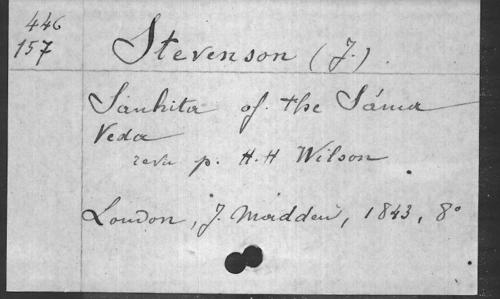 446
157
Stevenson (J.)
Sanhita of the Sáma
Veda
revu p. H.H Wilson
London, J. Madden, 1843, 8°